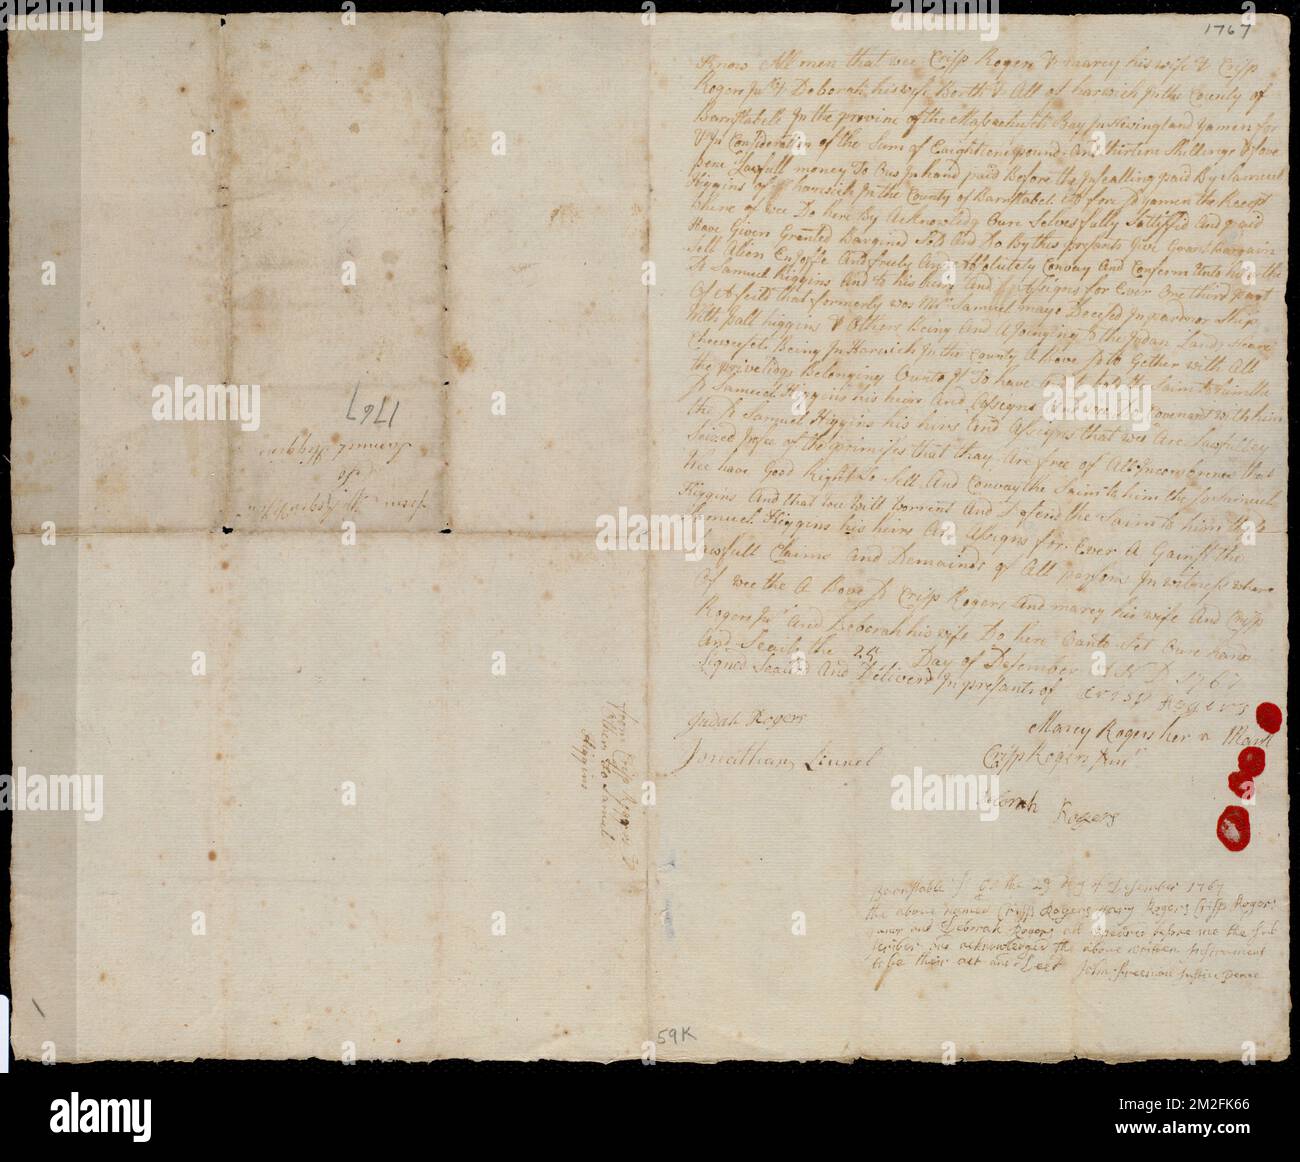 1767
Know All men that wee Crisp Rogers & marcy his wife & Crisp
Rogers Junr & Deborah his wife Borth & All of harwich In the County of
Barnstabell In the provinc of the Massechusets Bay In Newingland yamen for
& In Consideration of the Sum of Eaight one pound And thirten Shillings & fore
pene Lawfull money To Ous In hand paid Before the Insealling paid By Samuel
Higgins of harwich In the County of Barnstabel afore sd yamen the Recept
Where of wee Do here By Acknowledg Oure Selves fully Sattisfid And paid
Have Given Granted Bargined Sold And Do By this presants Give Grant Bargain
Sell Alien Enfoffe And freely And Absolutely Convay And Conferm Unto him the
Sd Samuel higgins And to his heirs And Assigns for Ever One third part
Of A feild that formerly was Mr Samuel mayo Decesed In pardnor ship
With pall higgins & Others Being And Ajoinging to the Indan Lands
Being In Harwich In the County A bove sd to Gether with All
the priveliags Belonging thereunto To have & to hold the Saim
sd Samuel Higgins his heirs And Assigns And wee Do Covenant with him
the sd Samuel Higgins his heirs And Assigns that wee Are Lawfulley
Seized of the primises that thay Are free of All Incomberence that
Wee have Good Right to Sell And Convay the Saim to him the sd Samuel
Higgins And that wee Will Worrent And Defend the Saim to him the sd
Samuel Higgins his heirs And Assigns for Ever A Gainst the
Lawfull Claims And Demainds of All parsons In witness where
Of wee the A Bove sd Crisp Rogers And marcy his wife And Crisp
Rogers Junr And Deborah his wife Do here Unto Set Oure hands
And Seails the 25 Day of Desember A N D 1767
Signed Sealled And Deliverd In presants of
Crisp Rogers
Judah Rogers
Marcy Rogers her Mark
Jonathan Linnel
Crisp Rogers Junr
Deborah Rogers
Barnstable Ss On the 29 Day of Desember 1767
the above named Crisp Rogers Marcy Rogers Crisp Rogers
junr and Deborah Rogers all apeared before me the sub
scriber and acknowledged the above written Instrument
to be their act and Deed John Freeman Justice peace
from Crisp Rogers &
Others To Samuel
Higgins
1767
Samuel Higgins
to
59K
alamy
Image ID: 2M2FK66
www.alamy.com